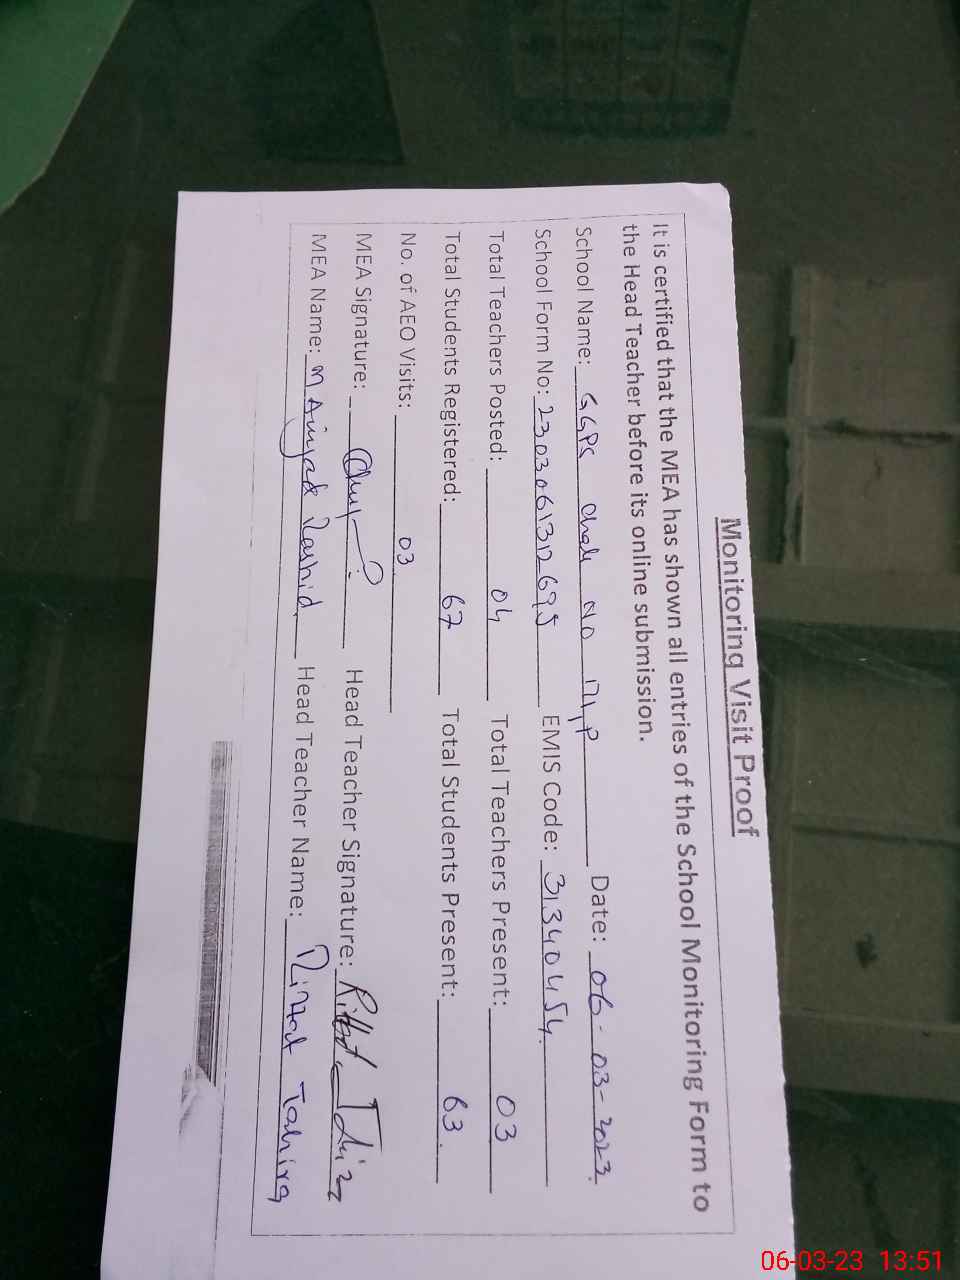 Monitoring Visit Proof
It is certified that the MEA has shown all entries of the School Monitoring Form to
the Head Teacher before its online submission.
School Name: GGPS Chak No 171P Date: 06-03-2023.
School Form No: 2303061312695 EMIS Code: 31340454.
Total Teachers Posted: 04 Total Teachers Present: 03
Total Students Registered: 67 Total Students Present: 63.
No. of AEO Visits: 03
MEA Signature: Head Teacher Signature: Riffat
MEA Name: M Amjad Rashid. Head Teacher Name: Tahira
06-03-23 13:51